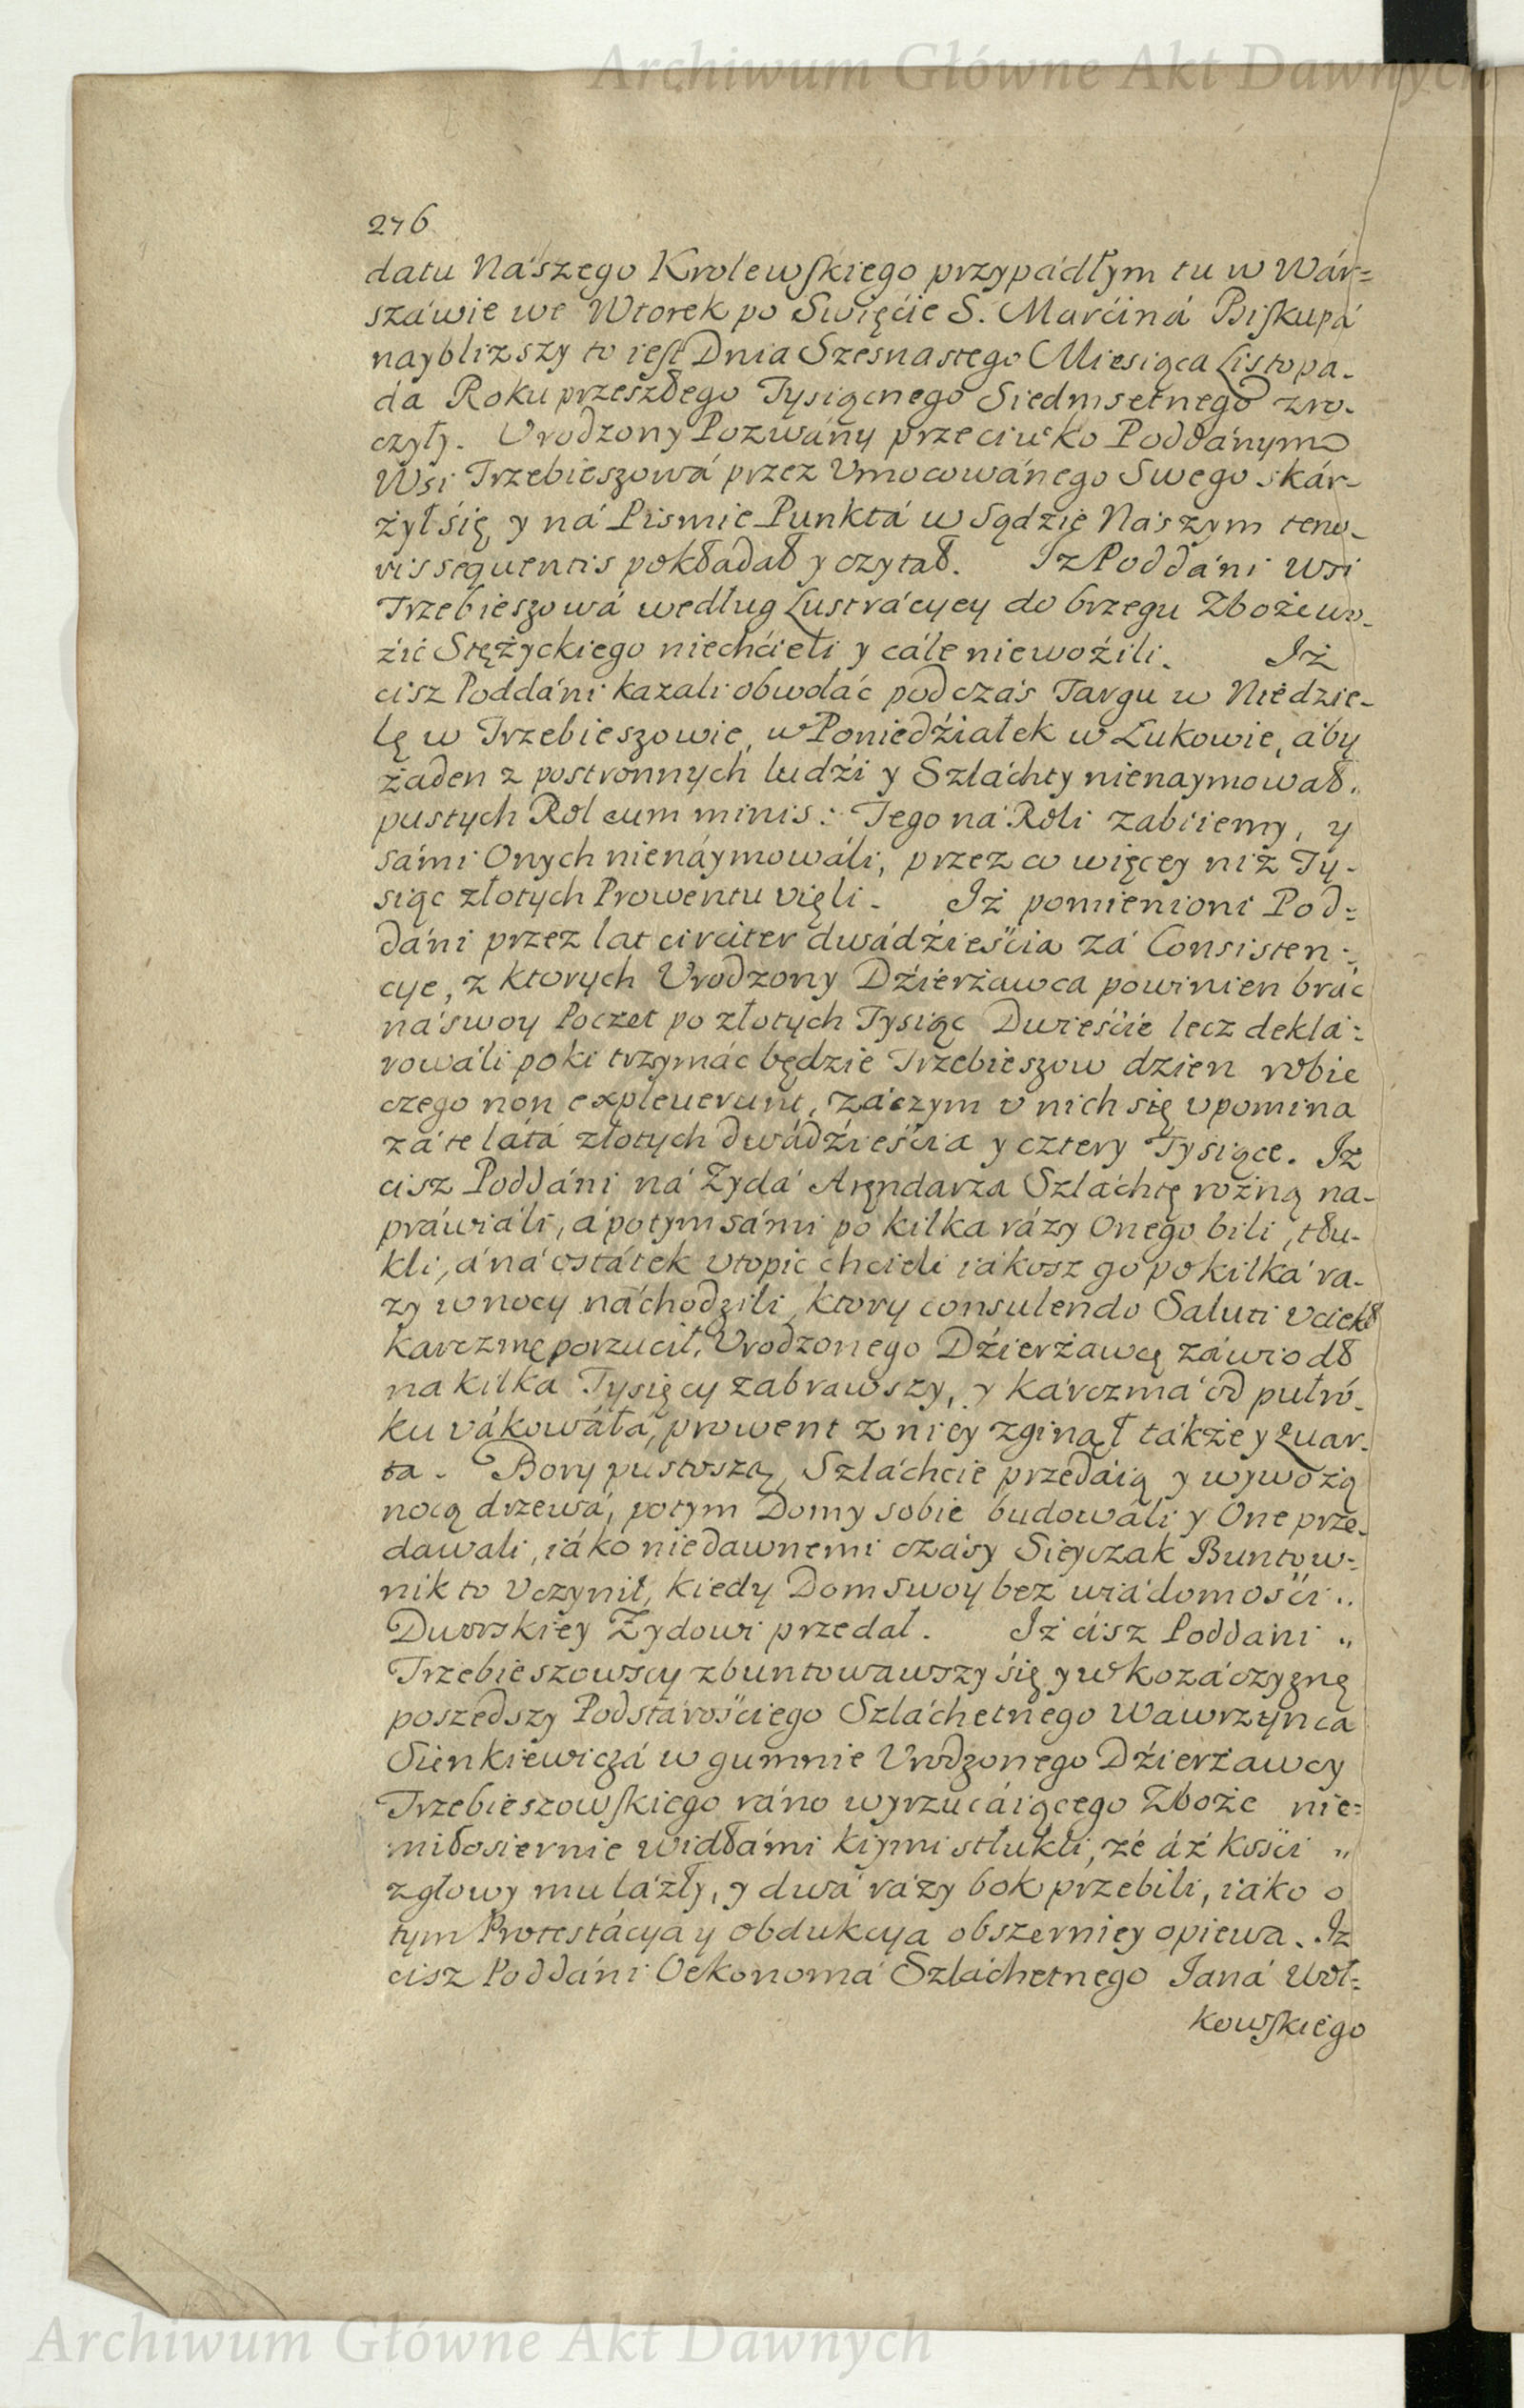 Archiwum Główne Akt Dawnych
276
datu Nászego Krolewskiego przypádłym tu w Wár=
száwie we Wtorek po Swięćie S. Marćiná Biskupá
naybliższy to iest Dnia Szesnastego Miesiąca Listopa-
da Roku przeszłego Tysiącnego Siedmsetnego zro-
czyły. Vrodzony Pozwány przeciwko Poddánym
Wsi Trzebieszowá przez Vmocowánego Swego skár-
żył się, y ná Pismie Punktá w Sądzie Nászym teno-
ris sequentis pokładał y czytał. Iz Poddáni Wsi
Trzebieszowá według Lustrácyey do brzegu Zboże wo-
źić Stężyckiego niechćieli y cále niewoźili. Iż
cisz Poddáni kazali obwołać podczás Targu w Niedzie-
lę w Trzebieszowie, w Poniedźiałek w Łukowie, áby
żaden z postronnych ludźi y Szláchty nienaymował
pustych Rol cum minis: Tego ná Roli zabiiemy, y
sámi Onych nienáymowáli, przez co więcey niż Ty-
siąc złotych Prowentu vięli. Iż pomienioni Pod=
dáni przez lat circiter dwádźieśćia zá Consisten=
cye, z ktorych Vrodzony Dźierżawca powinien brác
náswoy Poczet po złotych Tysiąc Dwieśćie lecz deklá=
rowáli poki trzymác będzie Trzebieszow dzien robic
czego non expleverunt, záczym v nich się vpomina
zá te látá złotych dwádźieśćia y cztery Tysiące. Iz
cisz Poddáni ná Zydá Aręndarza Szláchtę rożną na-
práwiáli, á potym sámi po kilka rázy Onego bili, tłu-
kli, á ná ostátek vtopic chcieli iakosz go po kilká ra-
zy w nocy náchodzili, ktory consulendo Saluti vciekł
karczmę porzucił, Vrodzonego Dźierżawcę záwiodł
na kilka Tysięcy zabrawszy, y kárczmá od pułro-
ku vákowáłá, prowent z niey zginął tákże y Quar-
ta. Bory pustoszą, Szláchcie przedáią y wywożą
nocą drzewá, potym Domy sobie budowáli y One prze-
dawali, iáko niedawnemi czásy Sieyczak Buntow=
nik to Vczynił, kiedy Dom swoy bez wiádomośći
Dworskiey Zydowi przedał. Iż ćisz Poddáni
Trzebieszowscy zbuntowawszy się y w kozáczyznę
poszedszy Podstárośćiego Szláchetnego Wawrzyńca
Sienkiewiczá w gumnie Vrodzonego Dźierżawcy
Trzebieszowskiego ráno wyrzucáiącego Zboże nie=
miłosiernie widłámi kiymi stłukli, że áż kośći
z głowy mu lázły, y dwá rázy bok przebili, iáko o
tym Protestácya y Obdukcya obszerniey opiewa. Iz
cisz Poddáni Oekonomá Szláchetnego Janá Woł=
kowskiego
Archiwum Główne Akt Dawnych